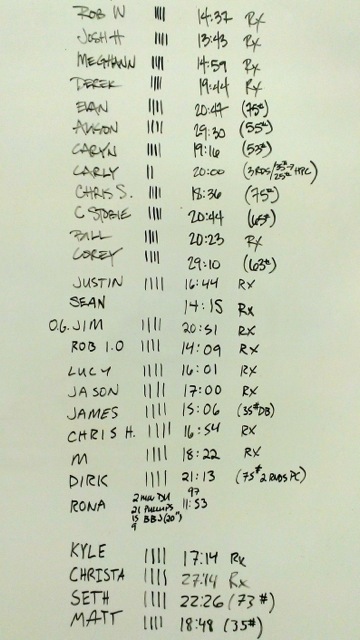 ROB W |||| 14:37 Rx
JOSH H |||| 13:43 Rx
MEGHANN |||| 14:59 Rx
DEREK |||| 19:44 Rx
EVAN |||| 20:47 (75#)
ALISON |||| 29:30 (55#)
CARYN |||| 19:16 (53#)
CARLY || 20:00 (3 RDS/35#→ 25# HPC)
CHRIS S. |||| 18:36 (75#)
C STOBIE |||| 20:44 (65#)
BILL |||| 20:23 Rx
COREY |||| 29:10 (63#)
JUSTIN |||| 16:44 Rx
SEAN 14:15 Rx
O.G. JIM |||| 20:51 Rx
ROB 1.0 |||| 14:09 Rx
LUCY |||| 16:01 Rx
JASON |||| 17:00 Rx
JAMES |||| 15:06 (35#DB)
CHRIS H. |||| 16:54 Rx
M |||| 18:22 Rx
DIRK |||| 21:13 (75# 2 RNDS PC)
RONA 2 min DU 97
21 11:53
15 BBJ (20")
9
KYLE |||| 17:14 Rx
CHRISTA |||| 27:14 Rx
SETH |||| 22:26 (73#)
MATT |||| 18:48 (35#)